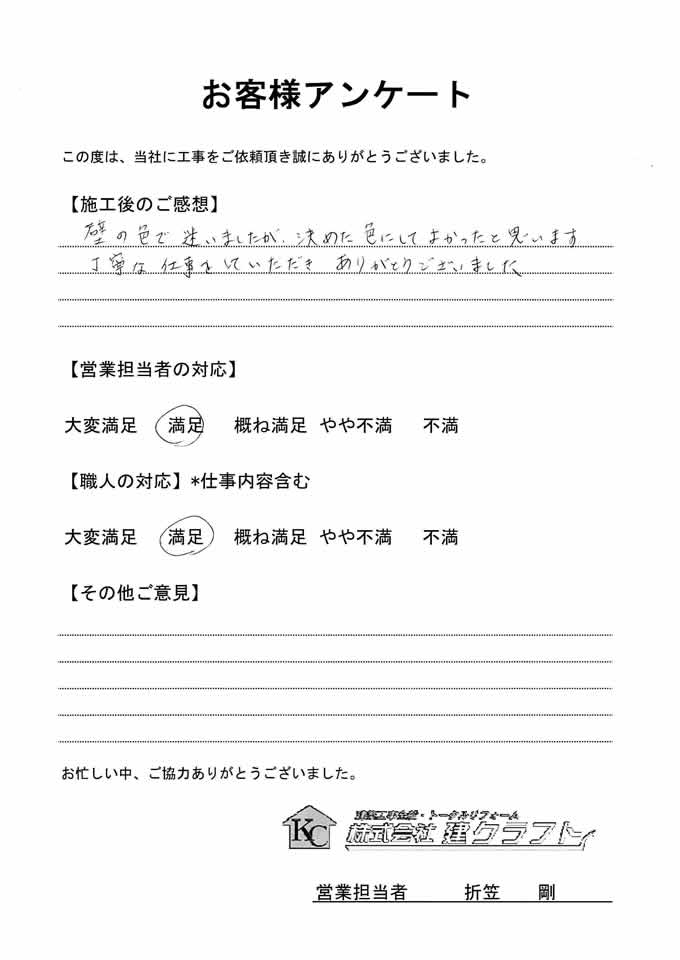 お客様アンケート
この度は、当社に工事をご依頼頂き誠にありがとうございました。
【施工後のご感想】
壁の色で迷いましたが、決めた色にしてよかったと思います
丁寧な仕事をしていただき ありがとうございました
【営業担当者の対応】
大変満足 満足 概ね満足 やや不満 不満
【職人の対応】*仕事内容含む
大変満足 満足 概ね満足 やや不満 不満
【その他ご意見】
お忙しい中、ご協力ありがとうございました。
KC
建築工事全般・トータルリフォーム
株式会社 建クラフト
営業担当者 折笠 剛